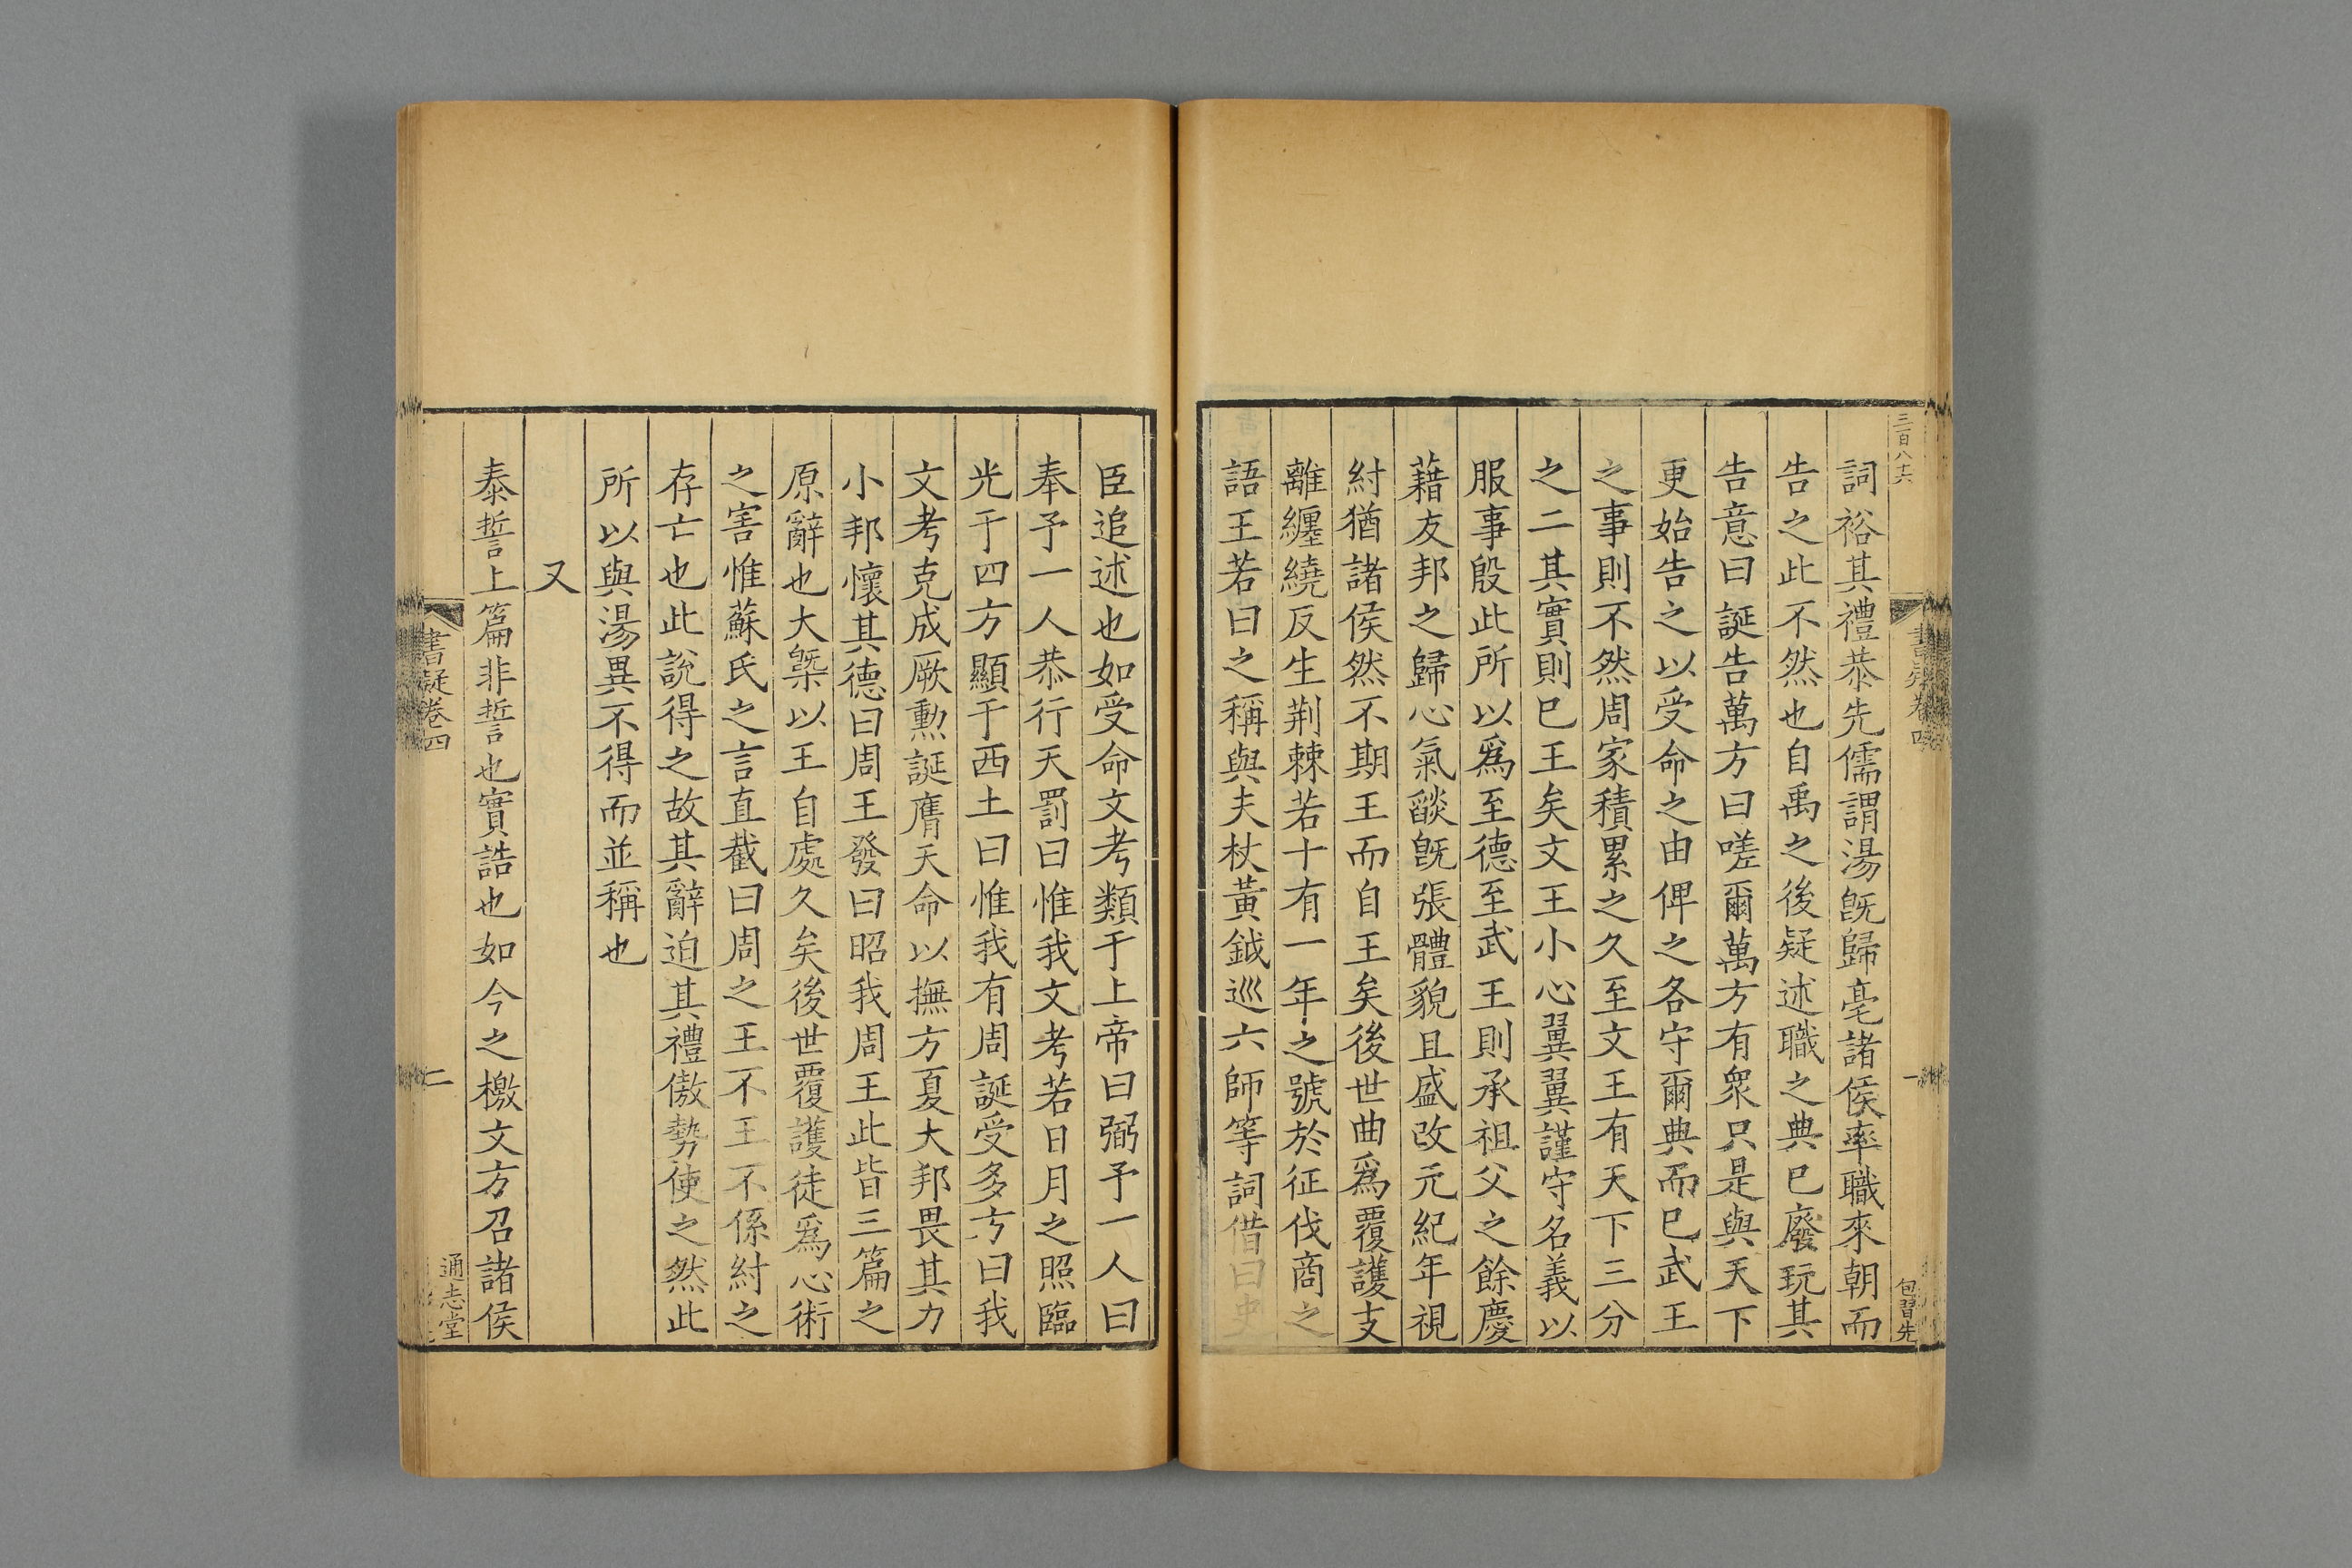 三百八十六
書疑卷四
一
包習先
詞裕其禮恭先儒謂湯旣歸亳諸侯率職來朝而
告之此不然也自禹之後疑述職之典已廢玩其
告意曰誕告萬方曰嗟爾萬方有衆只是與天下
更始告之以受命之由俾之各守爾典而已武王
之事則不然周家積累之久至文王有天下三分
之二其實則已王矣文王小心翼翼謹守名義以
服事殷此所以爲至德至武王則承祖父之餘慶
藉友邦之歸心氣燄旣張體貌且盛改元紀年視
紂猶諸侯然不期王而自王矣後世曲爲覆護支
離纏繞反生荆棘若十有一年之號於征伐商之
語王若曰之稱與夫杖黃鉞巡六師等詞借曰史
臣追述也如受命文考類于上帝曰弼予一人曰
奉予一人恭行天罰曰惟我文考若日月之照臨
光于四方顯于西土曰惟我有周誕受多方曰我
文考克成厥勳誕膺天命以撫方夏大邦畏其力
小邦懷其德曰周王發曰昭我周王此皆三篇之
原辭也大槩以王自處久矣後世覆護徒爲心術
之害惟蘇氏之言直截曰周之王不王不係紂之
存亡也此說得之故其辭迫其禮傲勢使之然此
所以與湯異不得而並稱也
又
泰誓上篇非誓也實誥也如今之檄文方召諸侯
書疑卷四
二
通志堂